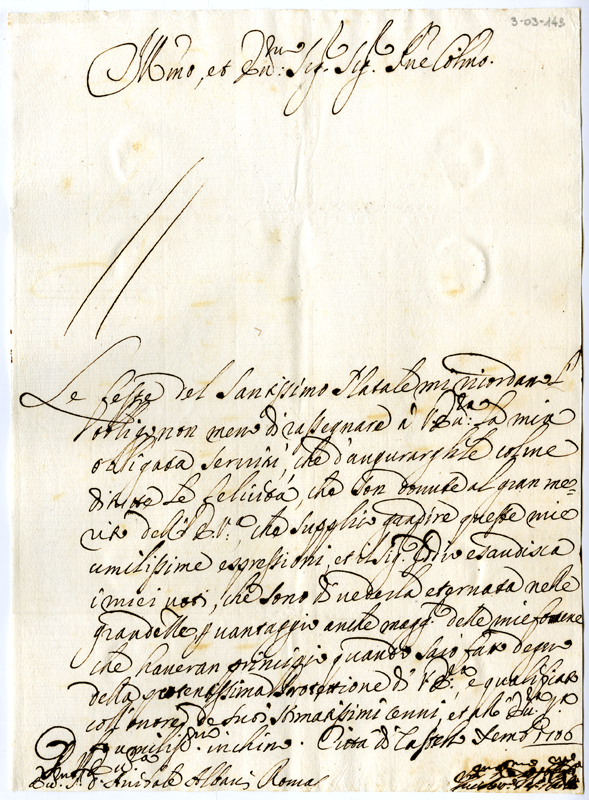 3-03-143
Illmo, et : Sig. Sig. Pne Colmo.
Le feste del Santissimo Natale mi ricordan l'
obligo non men di rassegnare à V. la mia
obligata servitù, che d'augurargliele colme
di tutte le felicità, che son dovute al gran me-
rito dell' che supplico gradire queste mie
umilissime espressioni, et il Sig. Iddio esaudisca
i miei voti, che sono di vederla eternata nelle
grandezze per vantaggio anche magg. delle mie fortune
che haveran principio quando sarò fatto degno
della potentissima Protettione di V. e qualificato
coll'onore de suoi stimatissimi cenni, et all'
umiliss. inchino. Città di Castello 1706
Annibale Albani Roma